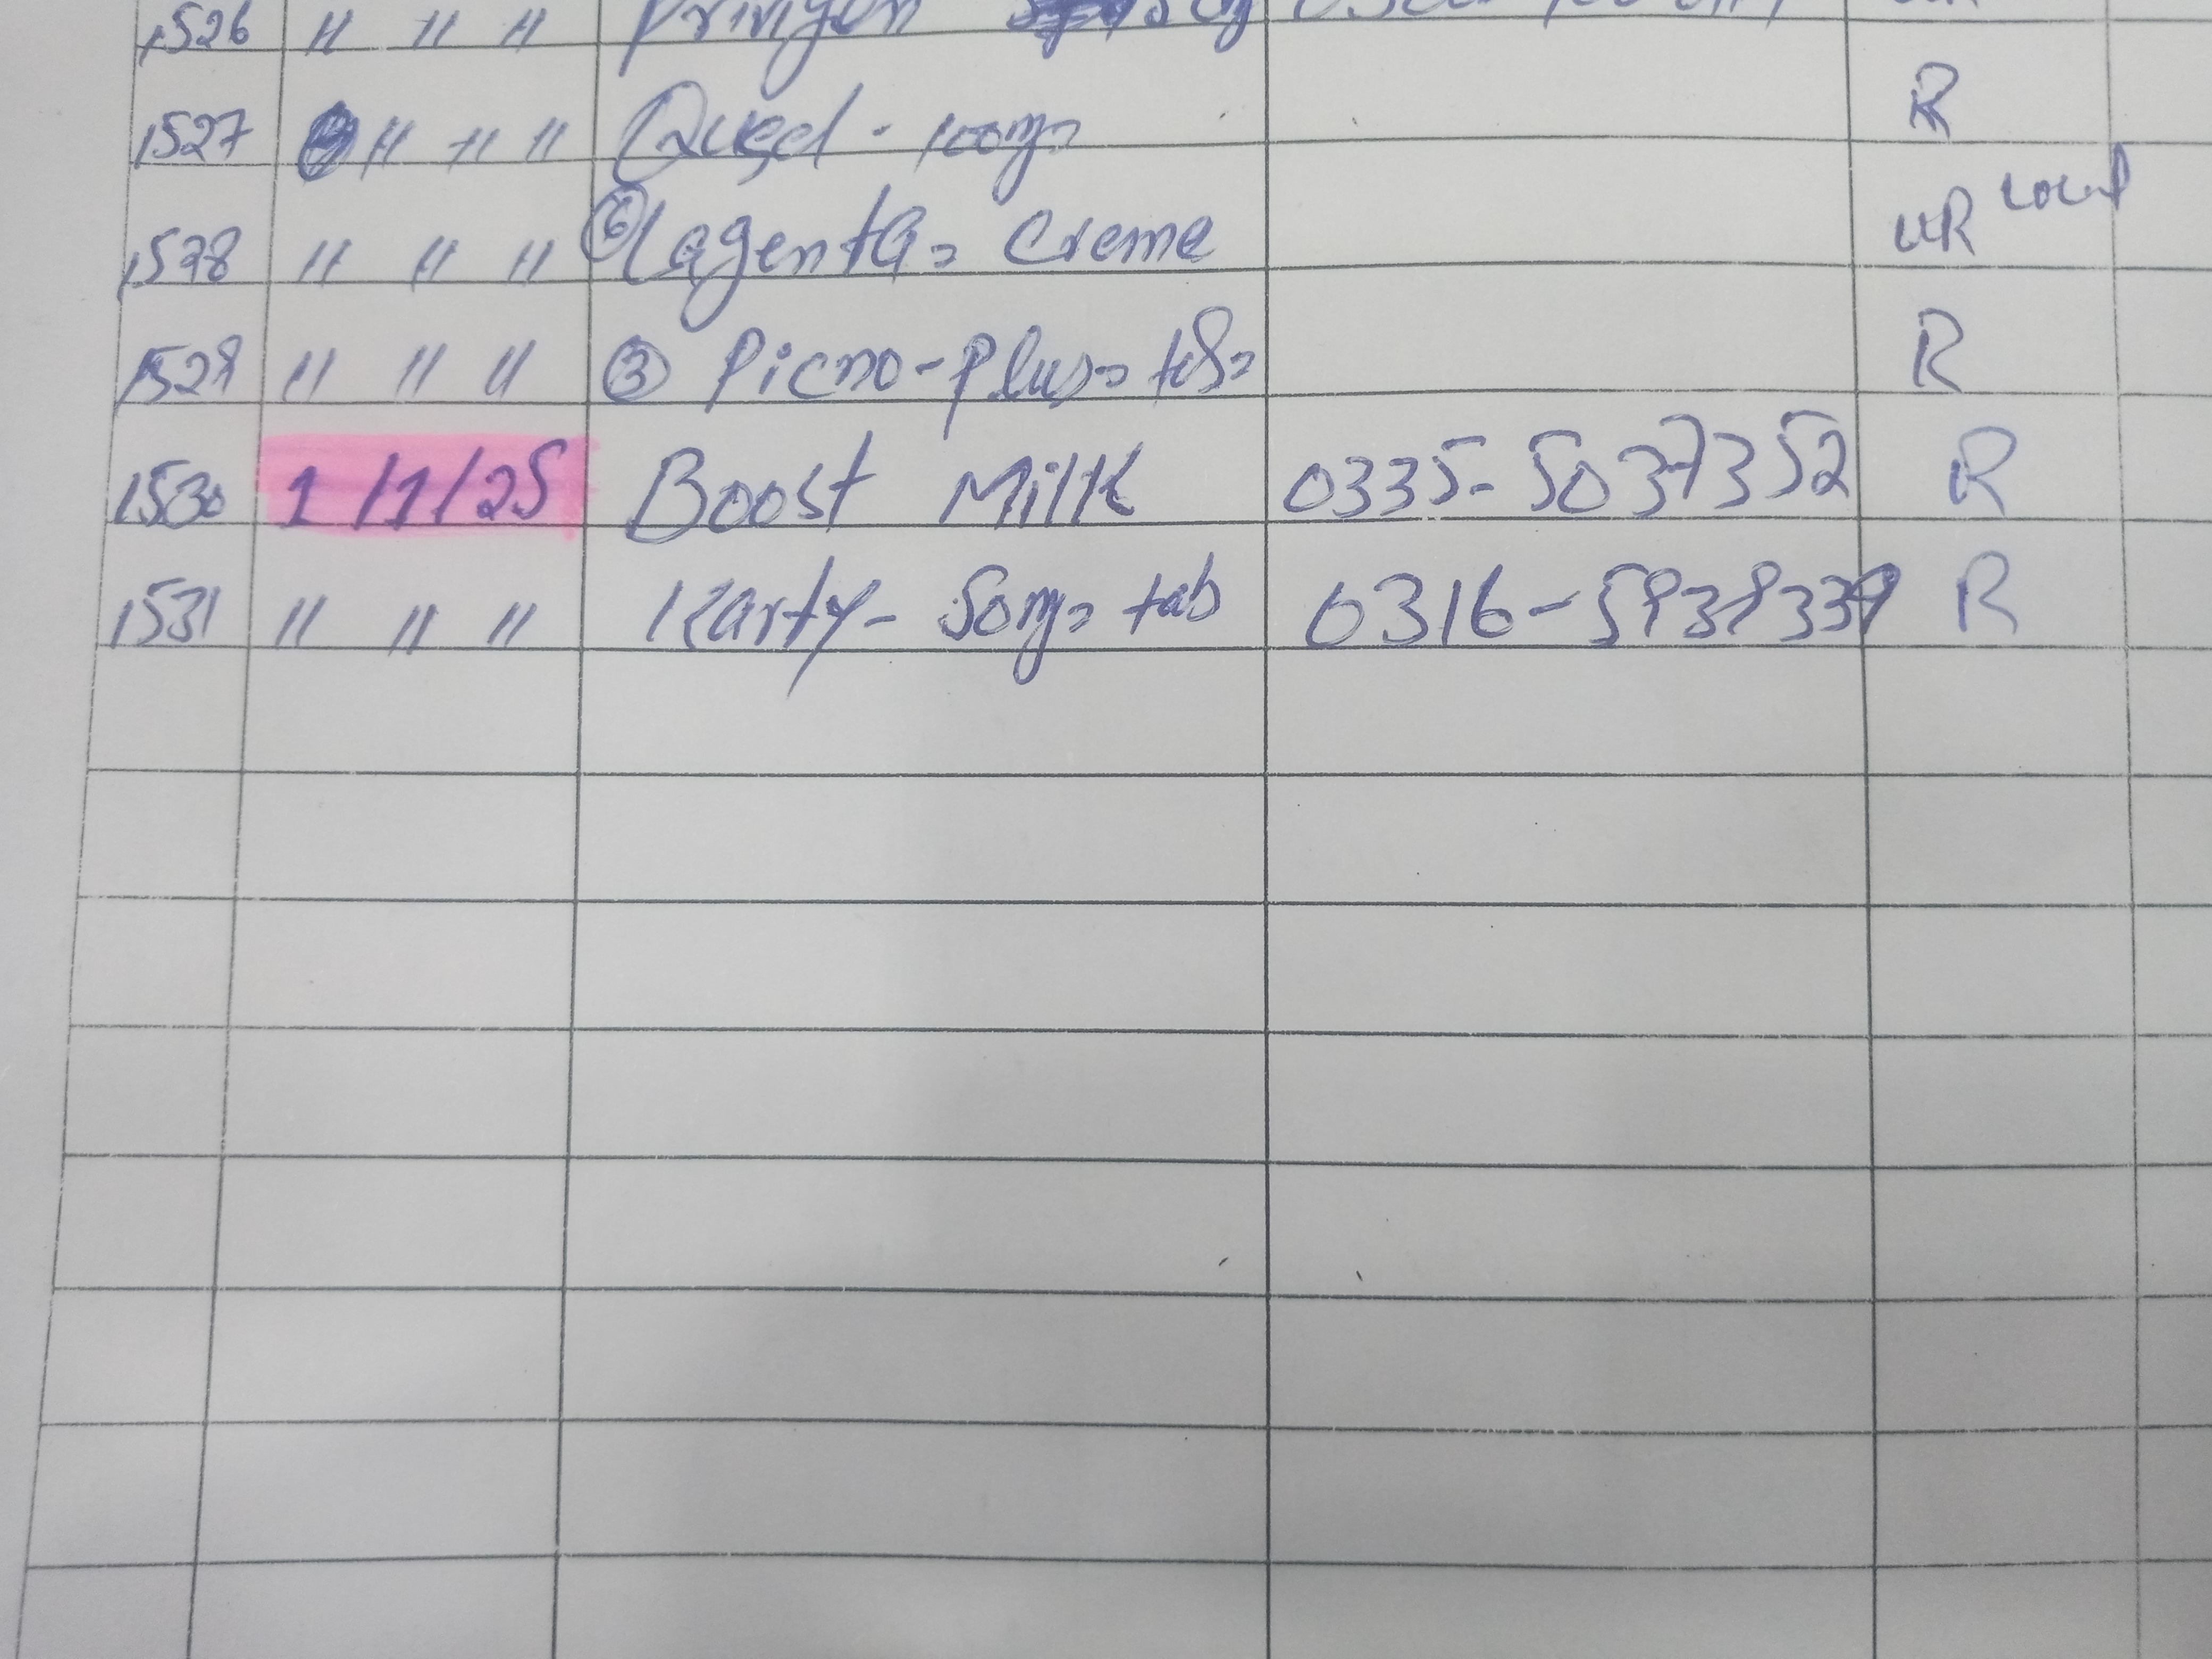 1526 " " "
1527 " " " Qusel - 100mg R
1528 " " " 6 Lagenta= Creme UR Local
1529 " " " 3 Picno-Plus= tab= R
1530 1/1/25 Boost Milk 0335-5037352 R
1531 " " " Karty- 50mg= tab R